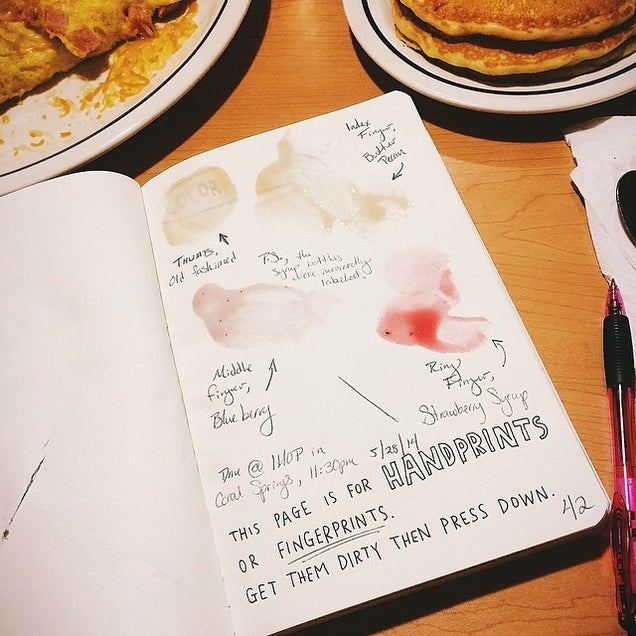 Index
Finger,
Butter
Pecan
COLOR
THUMB,
Old fashioned
P.S., the
syrup bottles
were incorrectly
labeled.
Middle
finger,
Blueberry
Ring
Finger,
Strawberry Syrup
Done @ IHOP in
Coral Springs, 11:30pm
5/28/14
THIS PAGE IS FOR HANDPRINTS
OR FINGERPRINTS.
GET THEM DIRTY THEN PRESS DOWN.
42